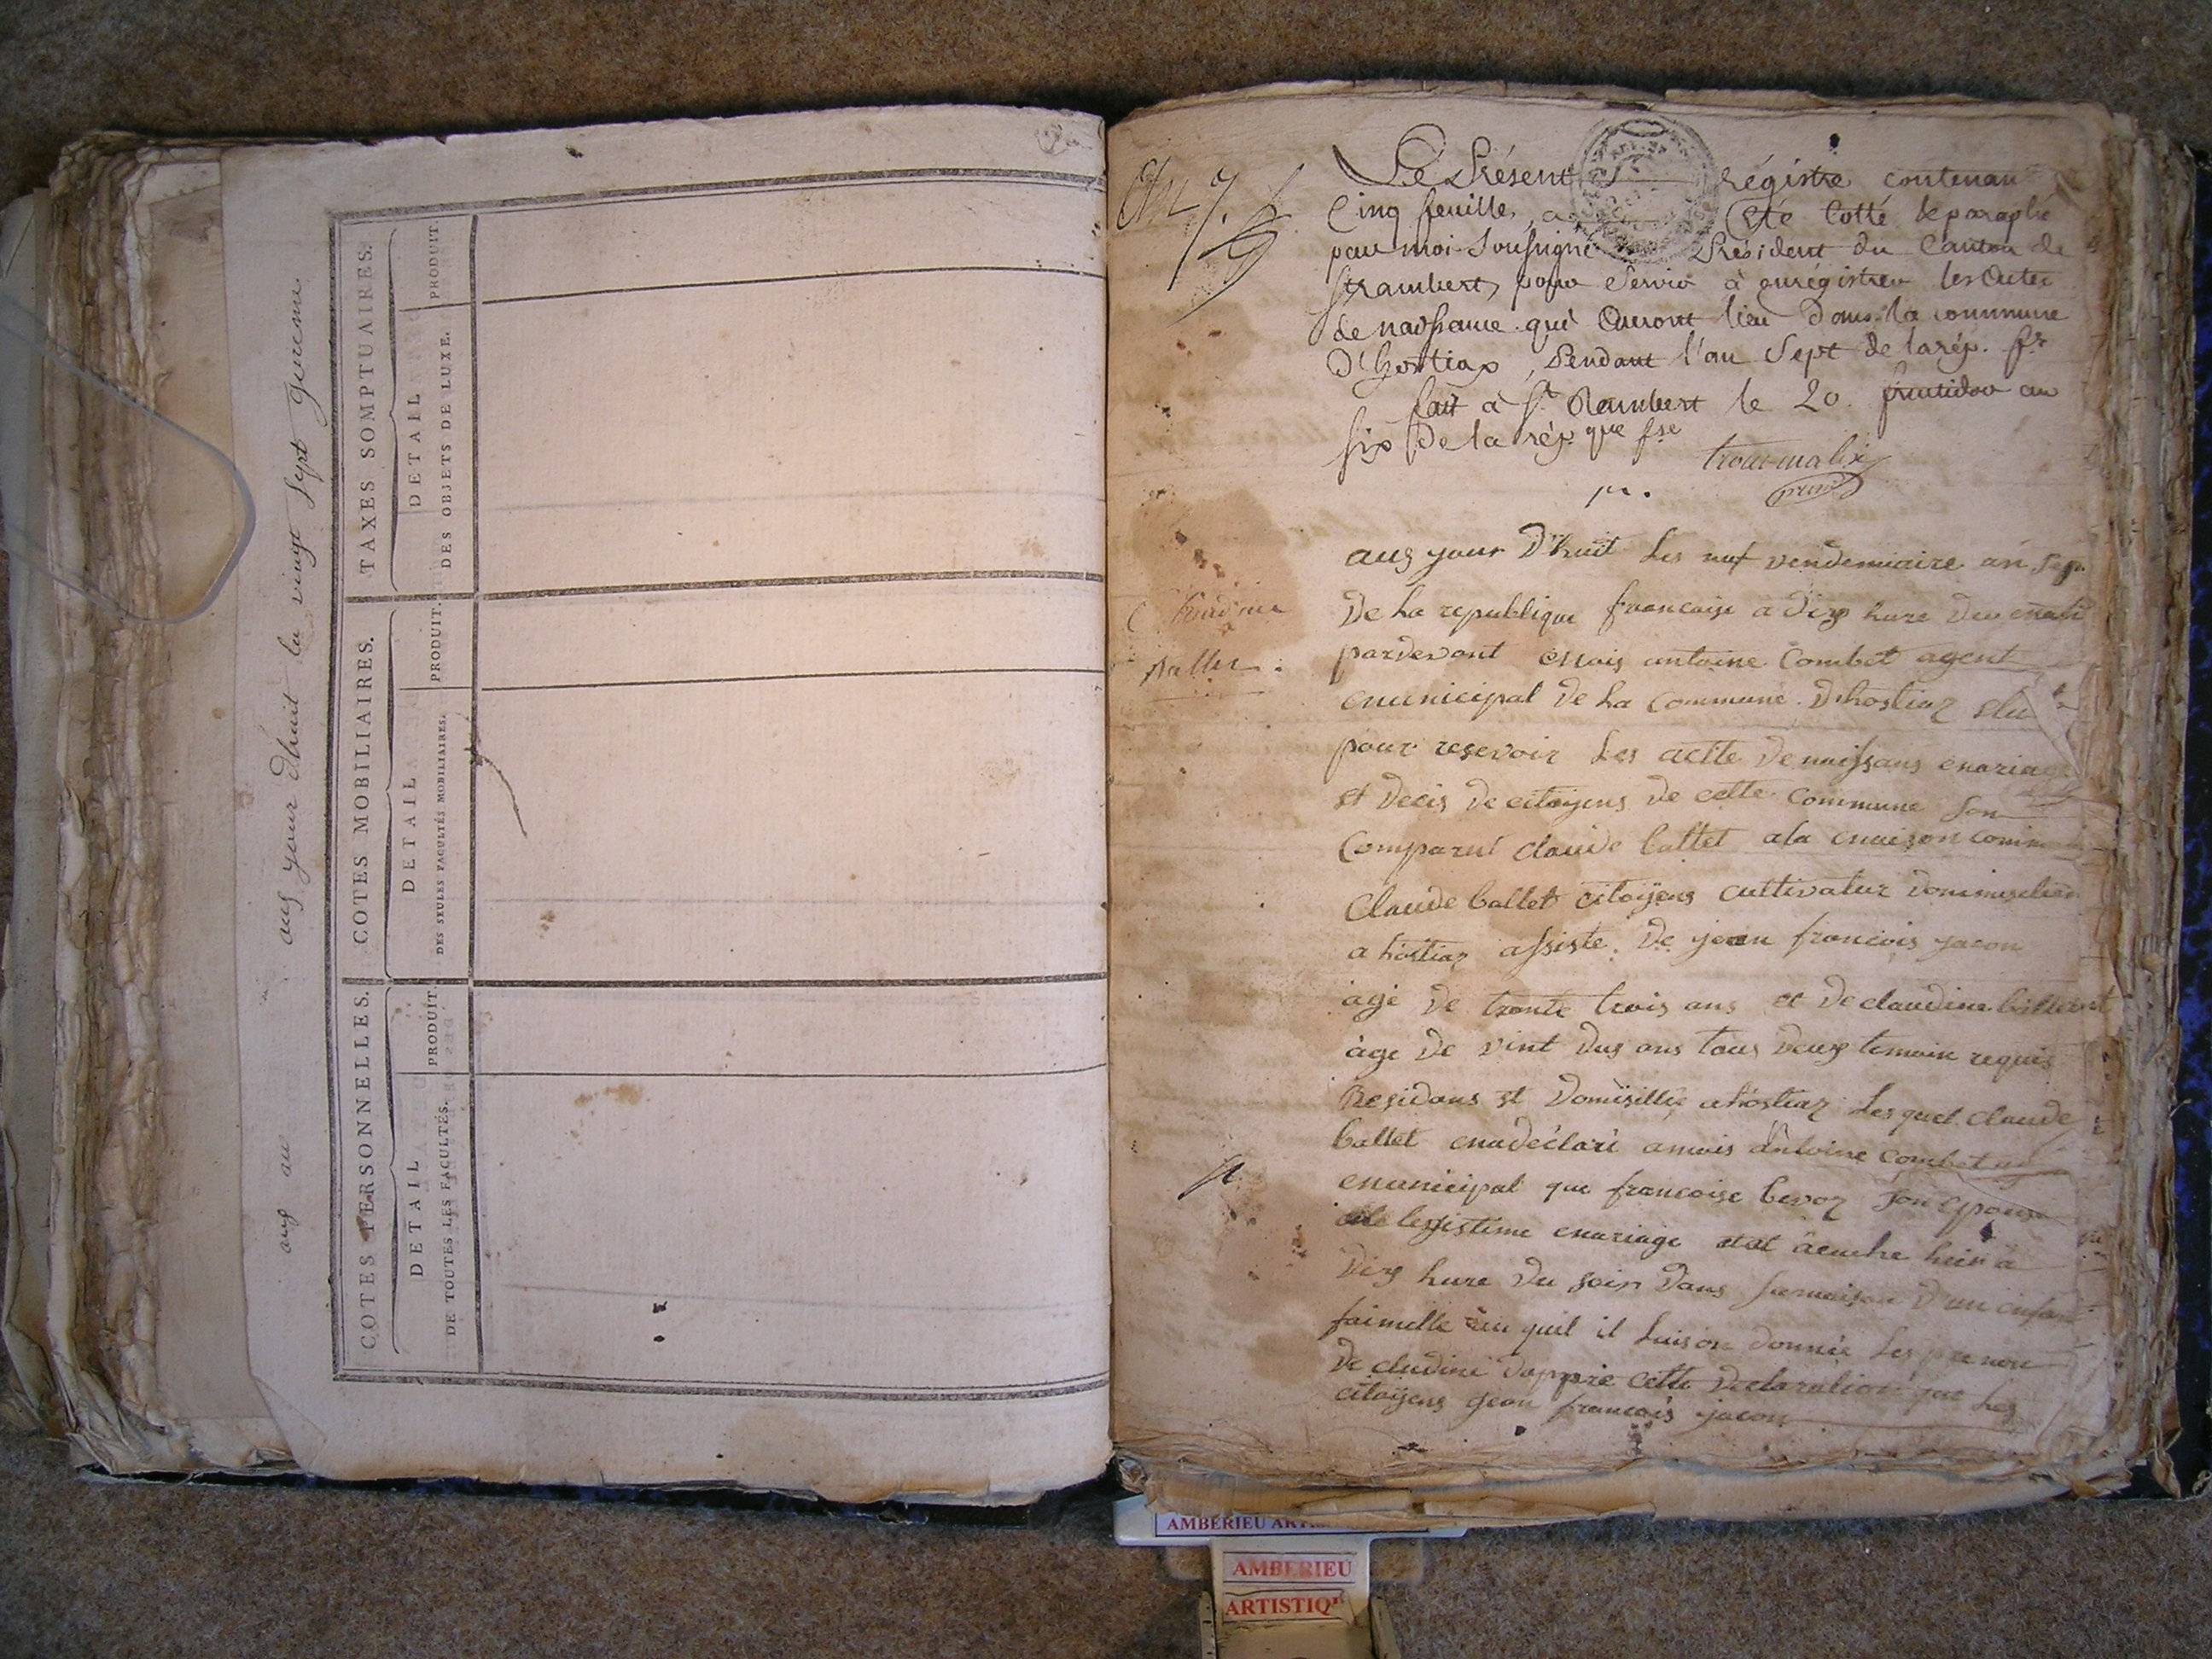 aug jour dhuit le vingt sept
aug au
TAXES SOMPTUAIRES.
DETAIL
DES OBJETS DE LUXE.
PRODUIT
COTES MOBILIAIRES.
DETAIL
DES SEULES FACULTÉS MOBILIAIRES.
PRODUIT.
COTES PERSONNELLES.
DETAIL
DE TOUTES LES FACULTÉS.
PRODUIT.
An 7.
Le Présent régistre contenant
Cinq feuilles, a été Cotté & paraphé
par moi Soussigné Président du Canton de
St rambert, pour Servir à enrégistrer les Actes
de naissance qui auront lieu dans la commune
d'hostiax, pendant l'an Sept de la rép. fse
fait à St Rambert le 20 fructidor an
six de la rép.que fse
aug jour D'huit Les nuf vendemiaire an sep
De La republique francaise a Dix hure Du matin
pardevant mois antoine Combet agent
municipal De La Commune D'hostiaz elu
pour resevoir Les actte De naissans mariage
et Decis De citoyens De cette Commune Son
Comparut claude ballet a la maison
Claude ballet citoyens cultivateur
a hostiaz assiste De jean francois jacon
age De trante trois ans et De claudine
age De vint Dus ans tous Deux temoin requis
Residans et Domisillie a hostiaz Lesquel Claude
ballet ma déclaré a mois Antoine Combet
municipal que francoise bevoz son epouse
legistime mariage etat acuche hier a
Dix hure Du soir Dans sa maison D'un enfant
faimelle quil il Luison donnée Les prenon
De cludine Dapprè cette Declaration que Les
citoyens jean francois jacon
AMBERIEU
AMBERIEU
ARTISTIQ